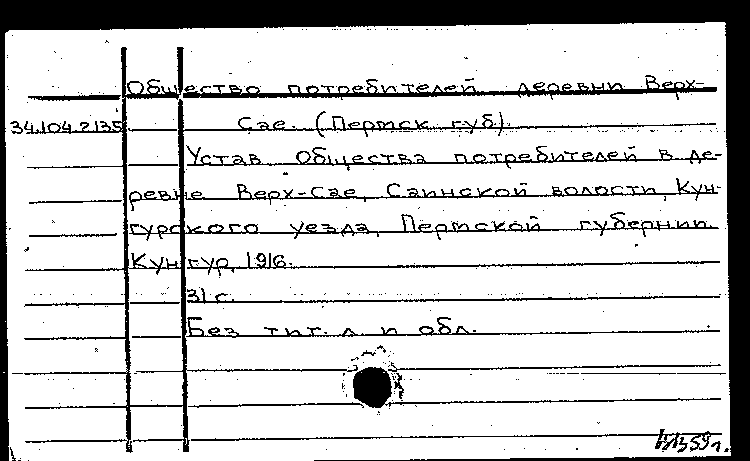 Общество потребителей деревни Верх-
34.104.2.135 Сае. (Пермск. губ).
Устав Общества потребителей в де-
ревне Верх-Сае, Саинской волости, Кун-
гурского уезда, Пермской губернии.
Кунгур, 1916.
31 с.
Без тит. л. и обл.